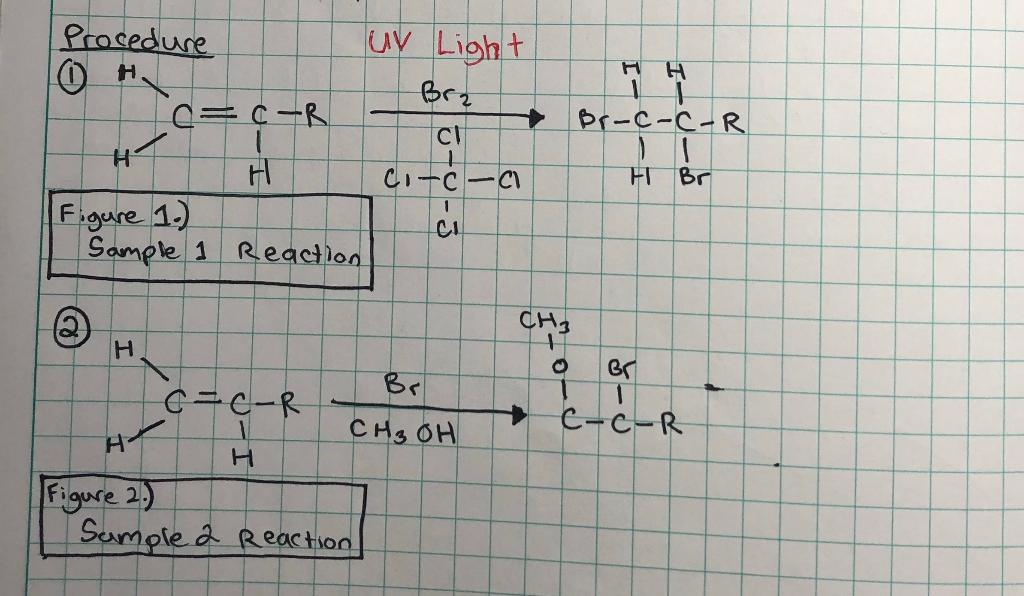 Procedure
UV Light
① H
C=C-R
H
H
Br2
Cl
Cl-C-Cl
Cl
H H
Br-C-C-R
H Br
Figure 1.)
Sample 1 Reaction
② H
C=C-R
H
H
Br
CH3OH
CH3
O Br
C-C-R
Figure 2.)
Sample 2 Reaction